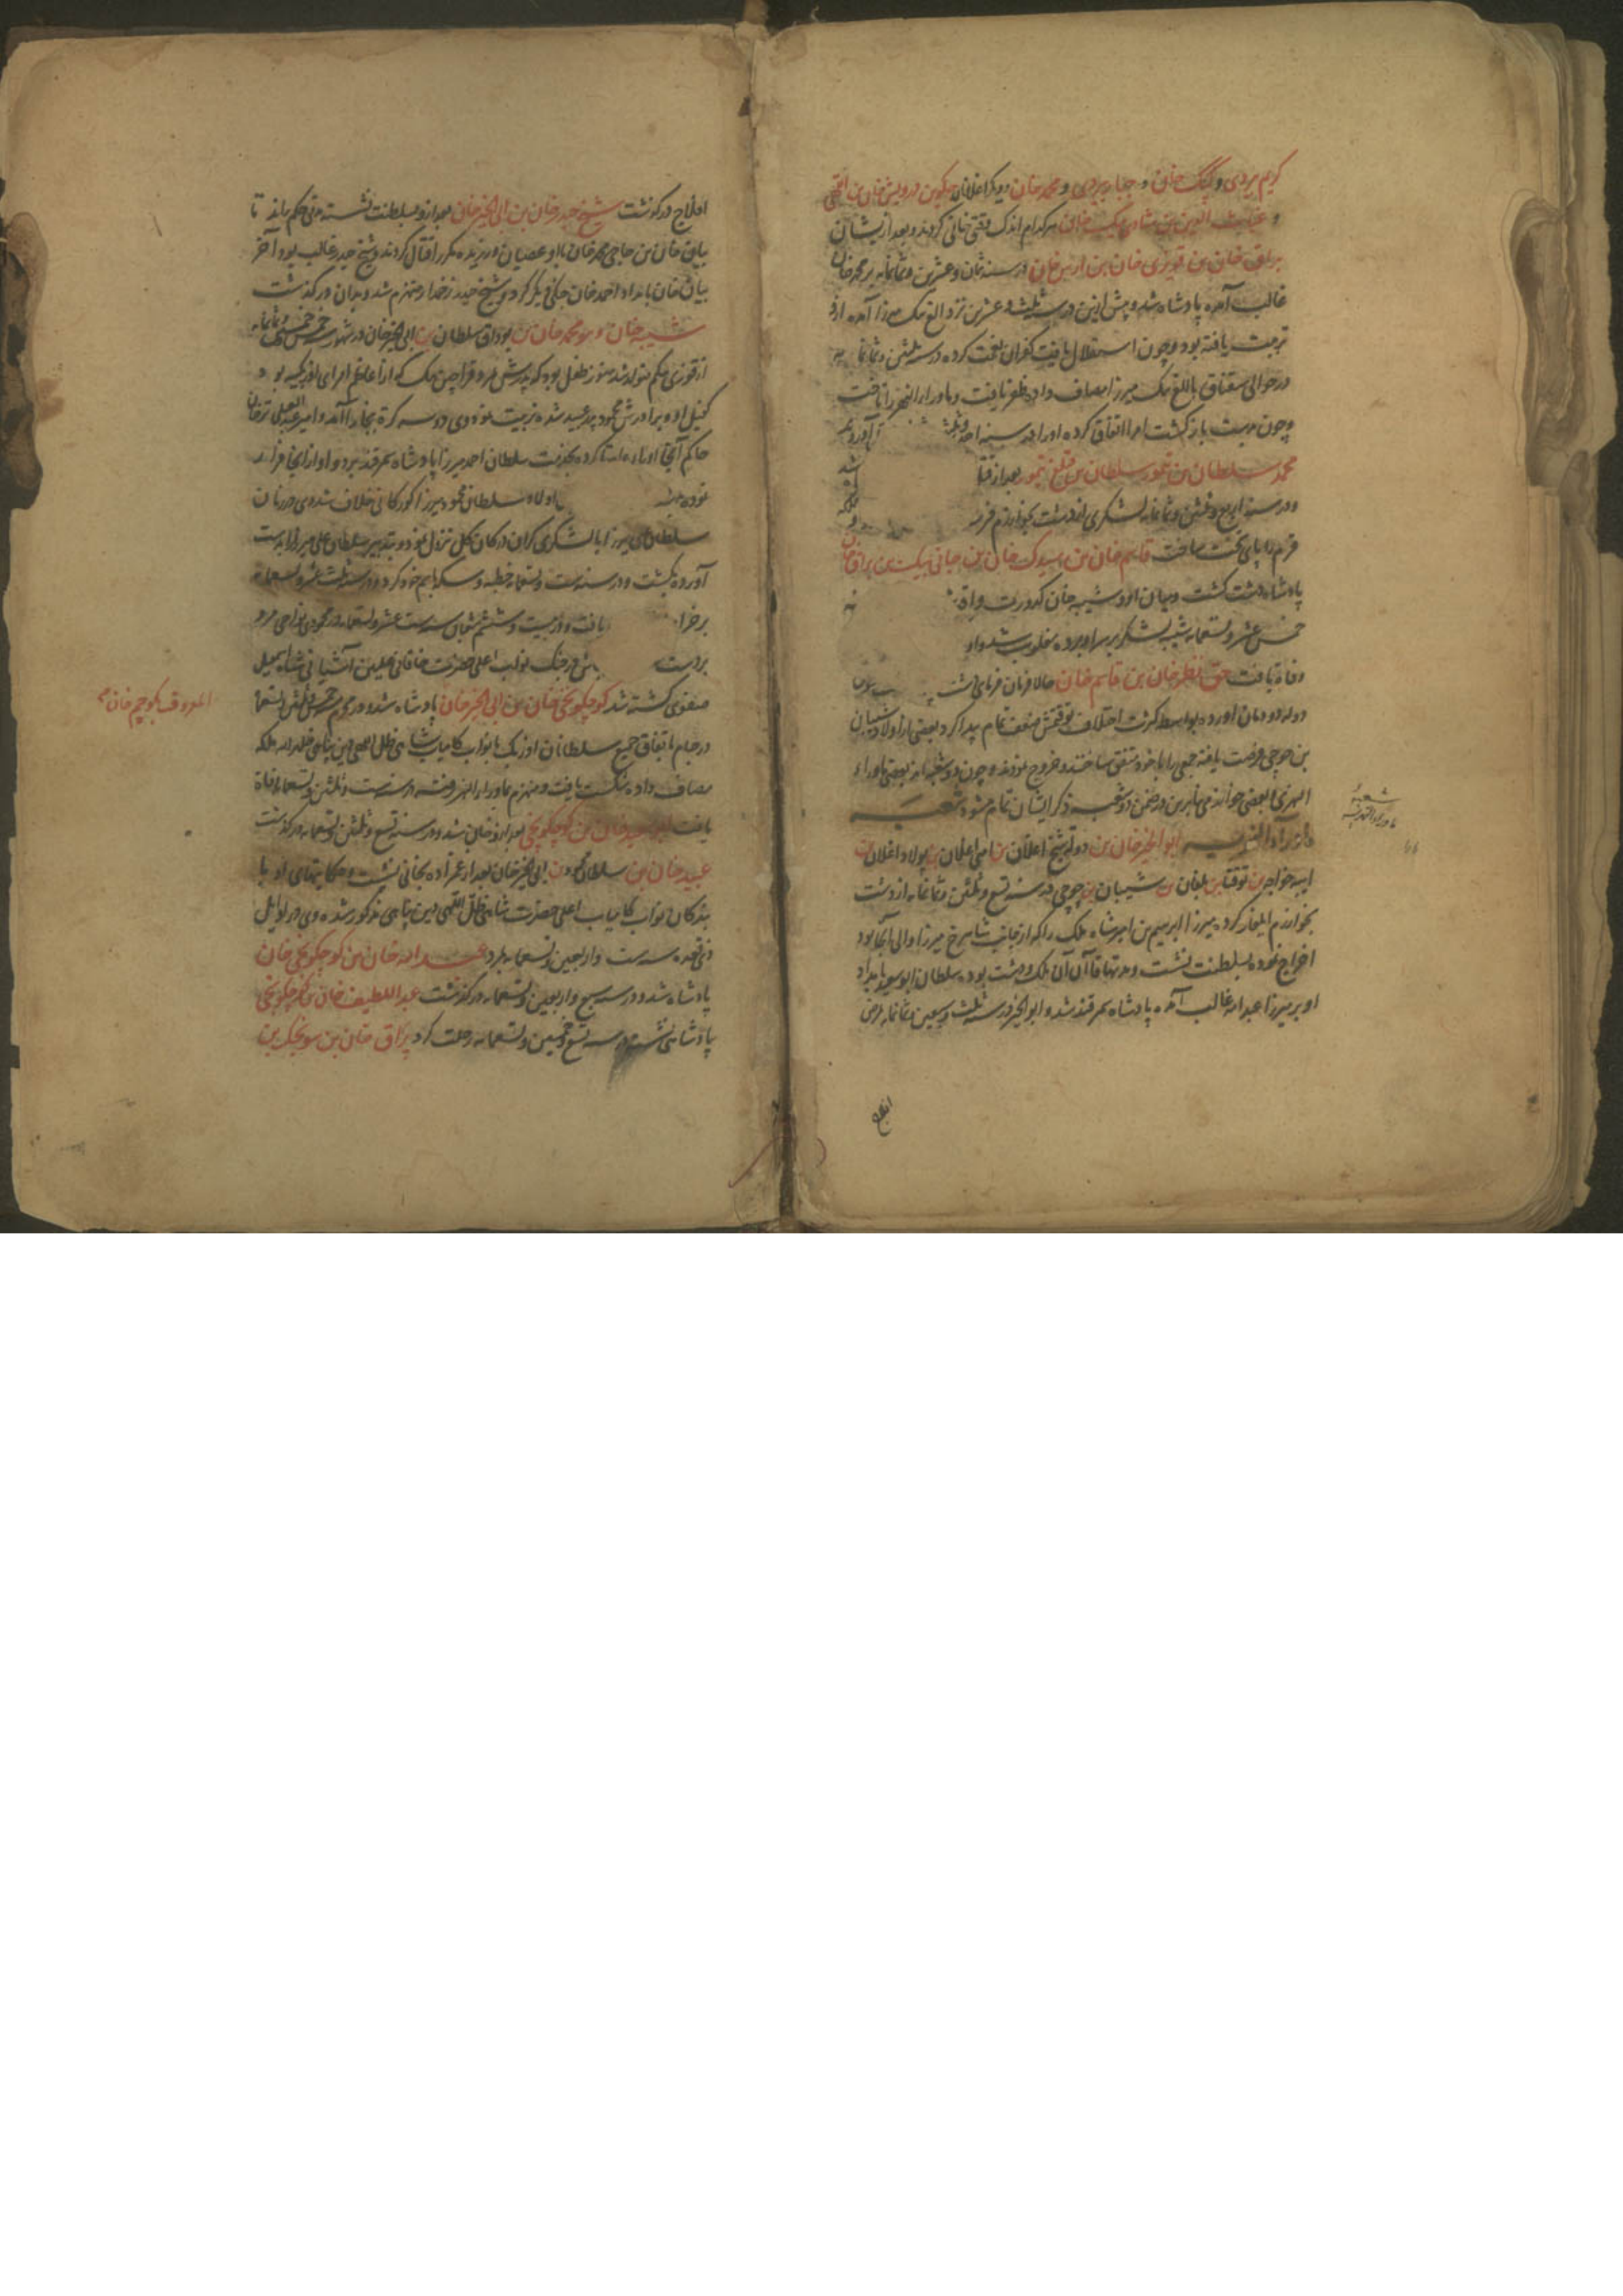 کریم بیردی و کپک خان و جبار بیردی و محمد خان و دیگر اغلانان درویش خان بن
و غیاث الدین بن شادی بیک خان هرکدام اندک وقتی خانی کردند و بعد ازیشان
براق خان بن قویرجی خان بن ارس خان در سنه ثمان و عشرین و ثمانمایه بر محمد خان
غالب آمده پادشاه شد و پیش ازین در سنه ثلث و عشرین نزد الغ بیک میرزا آمده ازو
تربیت یافته بود و چون استقلال یافت کفران نعمت کرده در سنه ثلثین و ثمانمایه
در حوالی سقناق با الغ بیک میرزا مصاف داده ظفر یافت و ماوراءالنهر را تاخت
و چون بدشت بازگشت امرا اتفاق کرده او را در سنه
محمد سلطان بن تیمور سلطان بن قتلغ تیمور بعد از
و در سنه اربع و ثلثین و ثمانمایه لشکری از دشت بخوارزم
قرم را پای تخت ساخت قاسم خان بن سیدک خان بن جانی بیک بن براق خان
پادشاه دشت گشت و میان او و شیبه خان کدورت
خمس عشر و تسعمایه شیبه لشکر بر سر او برده مغلوب شد و او
وفات یافت حق نظر خان بن قاسم خان حالا فرمان فرمای
دوله دودمان اورده بواسطه کثرت اختلاف توقتمش ضعف تمام پیدا کرد و بعضی از اولاد شیبان
بن جوجی فرصت یافته جمعی را با خود متفق ساختند و خروج نمودند و چون دو شعبه‌اند بعضی ماوراء
النهری و بعضی خوارزمی بنابرین در ضمن دو شعبه ذکر ایشان تمام میشود شعبه
ماوراءالنهریه ابوالخیر خان بن دولت شیخ اغلان بن اغلان بن پولاد اغلان بن
ایبه خواجه بن توقتا بن بلغان بن شیبان بن جوجی در سنه تسع و ثلثین و ثمانمایه از دشت
بخوارزم ایلغار کرده میرزا ابرهیم بن امیر شاه ملک را که از جانب شاهرخ میرزا والی آنجا بود
اخراج نموده بسلطنت نشست و مدتها قاآن آن ملک و دشت بوده سلطان ابوسعید بامداد
او بر میرزا عبدالله غالب آمده پادشاه سمرقند شد و ابوالخیر در سنه ثلث و سبعین و ثمانمایه بمرض
شعبه
ماوراءالنهریه
افلاج درگذشت شیخ حیدر خان بن ابی الخیر خان بعد ازو بسلطنت نشسته مدتی حکم راند تا
بیاق خان بن حاجی محمد خان با او عصیان ورزیده مکرر اقتال کردند و شیخ حیدر غالب بود آخر
بیاق خان بامداد احمد خان جنگی دیگر کرد و شیخ حیدر زخمدار منهزم شد و بدان درگذشت
شیبه خان و هو محمد خان بن بوداق سلطان بن ابی الخیر خان در شهور سنه خمس خمسین و ثمانمایه
از قوزی بیکم متولد شد هنوز طفل بود که پدرش مرد و قراچین بیک که از اعاظم امرای اوزبکیه بود
کفیل او و برادرش محمود پدر عبید شده تربیت نمود وی دو سه کرة بخارا آمد و امیر عبدالعلی ترخان
حاکم آنجا او را بخدمت سلطان احمد میرزا پادشاه سمرقند برد و او از آنجا فرار
نموده باولاد سلطان محمود میرزا کورکانی خلاف شد وی در زمان
سلطان علی میرزا با لشکری گران در کان گل نزول نمود و بتدبیر سلطان علی میرزا را بدست
آورده بکشت و در سنه ست و تسعمایه خطبه و سکه بنام خود کرد و در سنه ثلث عشر و تسعمایه
بر خرا یافت و در بیست و ششم شعبان سنه ست عشر و تسعمایه در محمودی نواحی مرو
بردست در جنگ نواب اعلی حضرت خاقانی علیین آشیانی شاه اسمعیل
صفوی کشته شد کوچکونجی خان بن ابی الخیر خان پادشاه شد و در محرم سنه خمس ثلثین و تسعمایه
در جام باتفاق جمیع سلطانان اوزبک با نواب کامیاب شاهی ظل اللهی دین پناهی خلد الله ملکه
مصاف داده شکست یافت و منهزم بماوراءالنهر رفت و در سنه ست و ثلثین و تسعمایه وفات
یافت ابوسعید خان بن کوچکونجی بعد ازو خان شد و در سنه تسع و ثلثین و تسعمایه درگذشت
عبید خان بن سلطان محمود بن ابی الخیر خان بعد از عمزاده بخانی نشست و حکایتهای او با
بندگان نواب کامیاب اعلی حضرت شاهی ظل اللهی دین پناهی مذکور شده وی در اوایل
ذیقعده سنه ست و اربعین و تسعمایه بمرد عبدالله خان بن کوچکونجی خان
پادشاه شد و در سنه سبع و اربعین و تسعمایه درگذشت عبداللطیف خان بن کوچکونجی
پادشاهی نشست در سنه تسع و خمسین و تسعمایه رحلت کرد براق خان بن سونجک بن
المعروف بکوچم خان